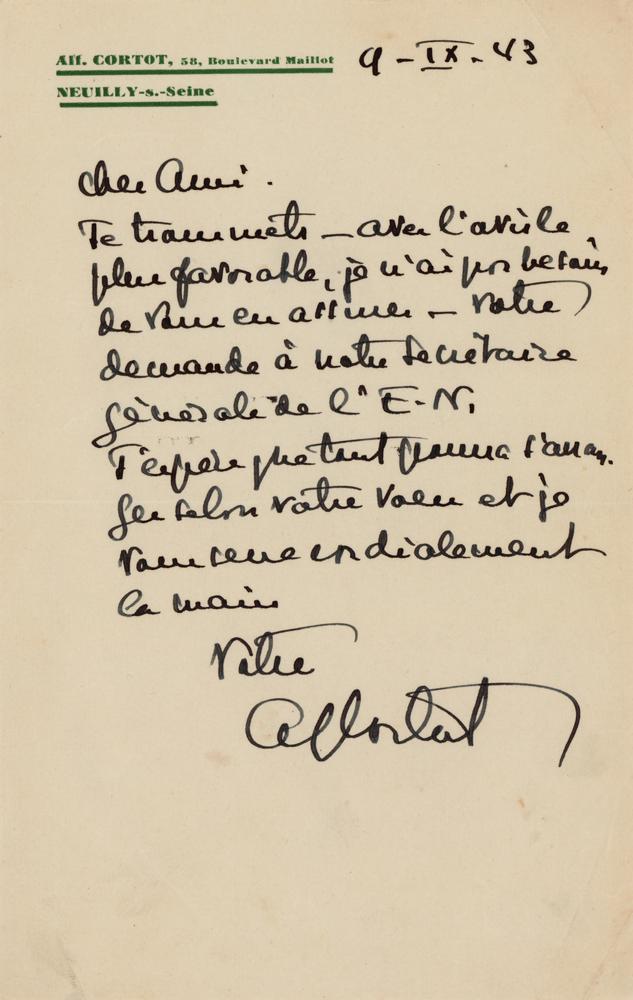 Alf. CORTOT, 58, Boulevard Maillot
NEUILLY-s.-Seine
9-IX-43
cher Ami.
Je transmets – avec l'avis le
plus favorable, je n'ai pas besoin
de vous en assurer – votre
demande à notre Secrétaire
générale de l'E-N.
J'espère que tout pourra s'arran-
ger selon votre voeu et je
vous serre cordialement
la main
Votre
A Cortot